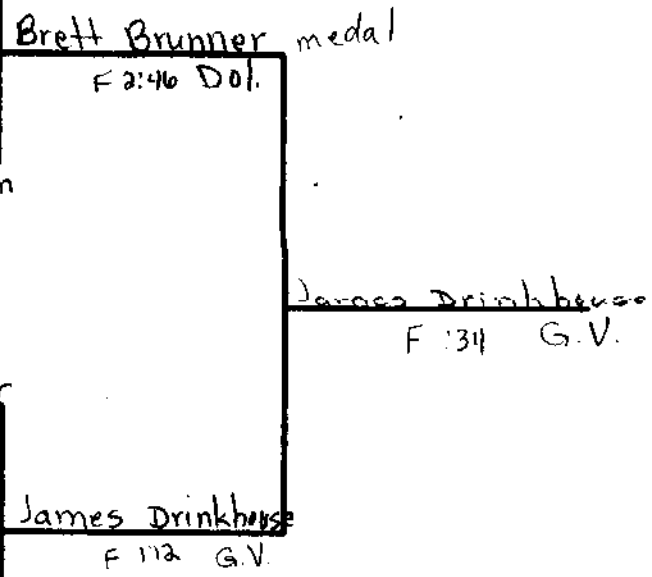 Brett Brunner medal
F 2:46 Dol.
n
James Drinkhouse
F :34 G.V.
r
James Drinkhouse
F 1:12 G.V.